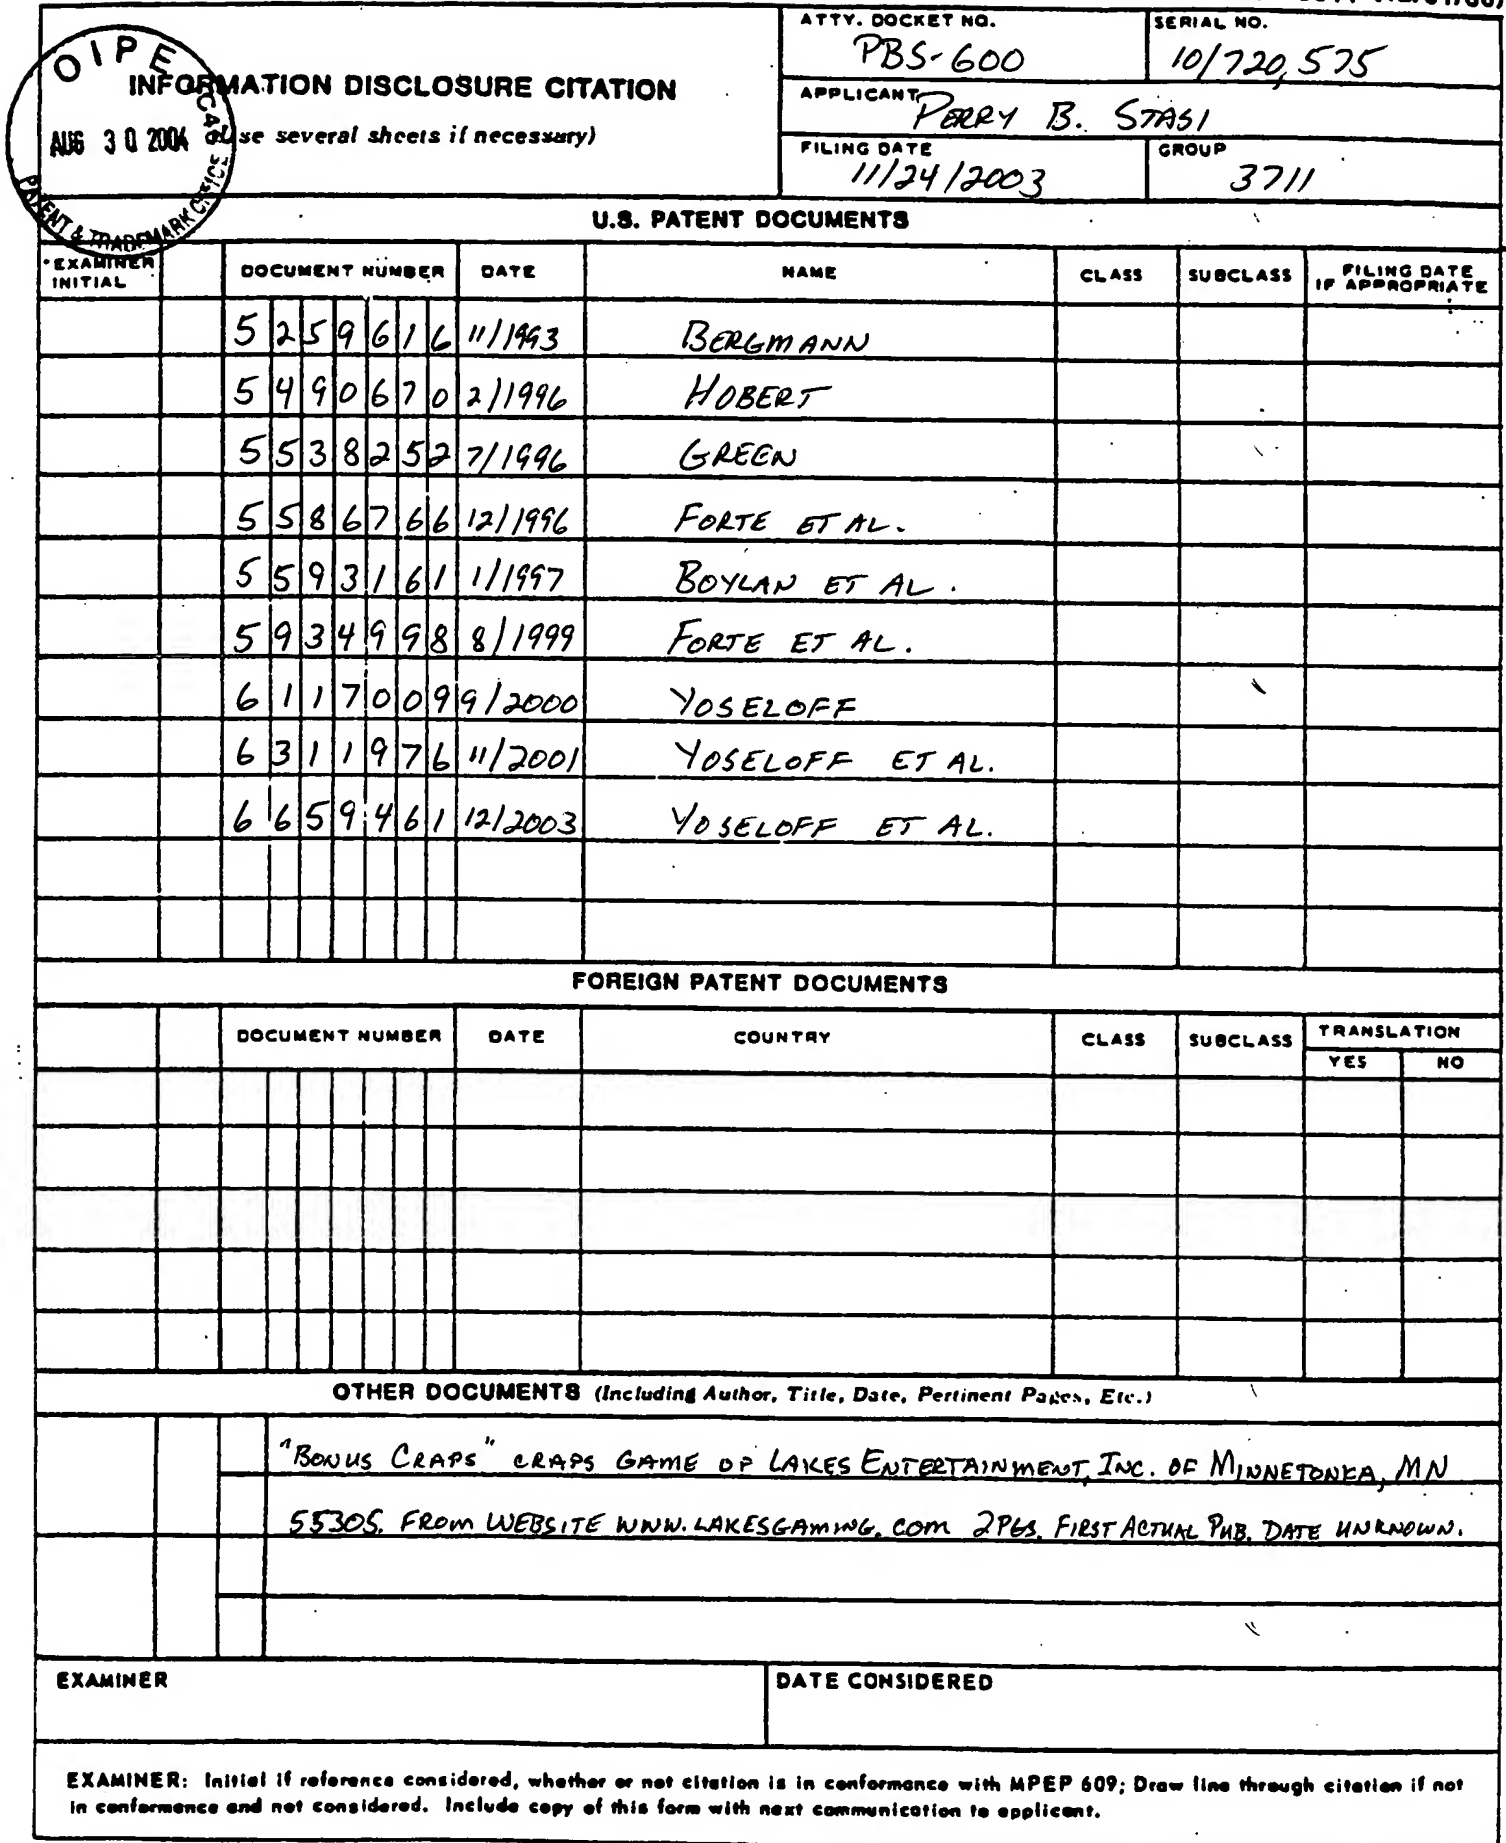 ATTY. DOCKET NO.
PBS-600
SERIAL NO.
10/720,575
OIPE
AUG 30 2004
PATENT & TRADEMARK OFFICE
INFORMATION DISCLOSURE CITATION
(Use several sheets if necessary)
APPLICANT
PERRY B. STASI
FILING DATE
11/24/2003
GROUP
3711
U.S. PATENT DOCUMENTS
*EXAMINER INITIAL DOCUMENT NUMBER DATE NAME CLASS SUBCLASS FILING DATE IF APPROPRIATE
5259616 11/1993 BERGMANN
5490670 2/1996 HOBERT
5538252 7/1996 GREEN
5586766 12/1996 FORTE ET AL.
5593161 1/1997 BOYLAN ET AL.
5934998 8/1999 FORTE ET AL.
6117009 9/2000 YOSELOFF
6311976 11/2001 YOSELOFF ET AL.
6659461 12/2003 YOSELOFF ET AL.
FOREIGN PATENT DOCUMENTS
DOCUMENT NUMBER DATE COUNTRY CLASS SUBCLASS TRANSLATION
YES NO
OTHER DOCUMENTS (Including Author, Title, Date, Pertinent Pages, Etc.)
"BONUS CRAPS" CRAPS GAME OF LAKES ENTERTAINMENT, INC. OF MINNETONKA, MN
55305. FROM WEBSITE WWW.LAKESGAMING.COM 2PGS. FIRST ACTUAL PUB. DATE UNKNOWN.
EXAMINER
DATE CONSIDERED
EXAMINER: Initial if reference considered, whether or not citation is in conformance with MPEP 609; Draw line through citation if not
in conformance and not considered. Include copy of this form with next communication to applicant.